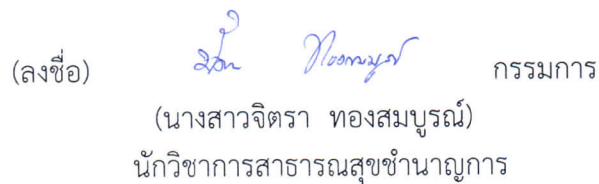 (ลงชื่อ) กรรมการ
(นางสาวจิตรา ทองสมบูรณ์)
นักวิชาการสาธารณสุขชำนาญการ